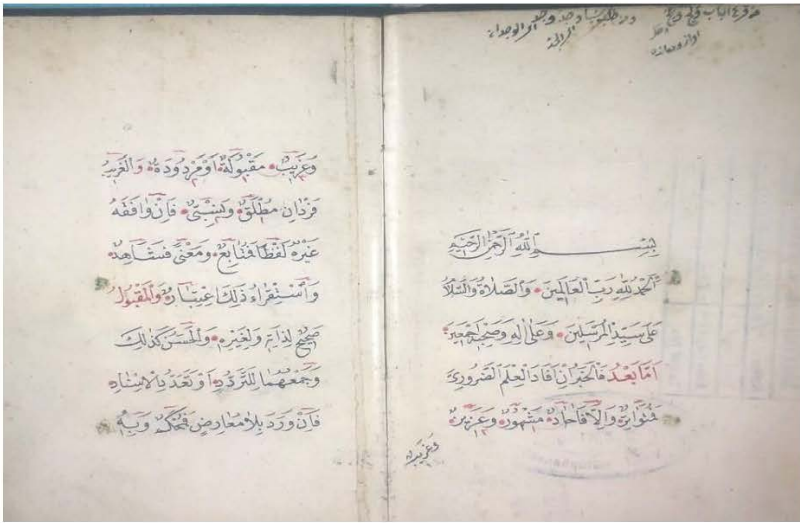 بسم الله الرحمن الرحيم
الحمد لله رب العالمين والصلاة والسلام
على سيد المرسلين وعلى اله وصحبه اجمعين
اما بعد فالخبر ان افاد العلم الضروري
فمتواتر والا فاحاد مشهور وعزيز
وغريب
وغريب مقبولة او مردودة والغريب
فردان مطلق ونسبي فان وافقه
غيره لفظا فتابع ومعنى فشاهد
واستقراء ذلك اعتبار والمقبول
صحيح لذاته ولغيره والحسن كذلك
وجمعهما للتردد او تعدد بالاسناد
فان ورد بلا معارض فمحكم وبه